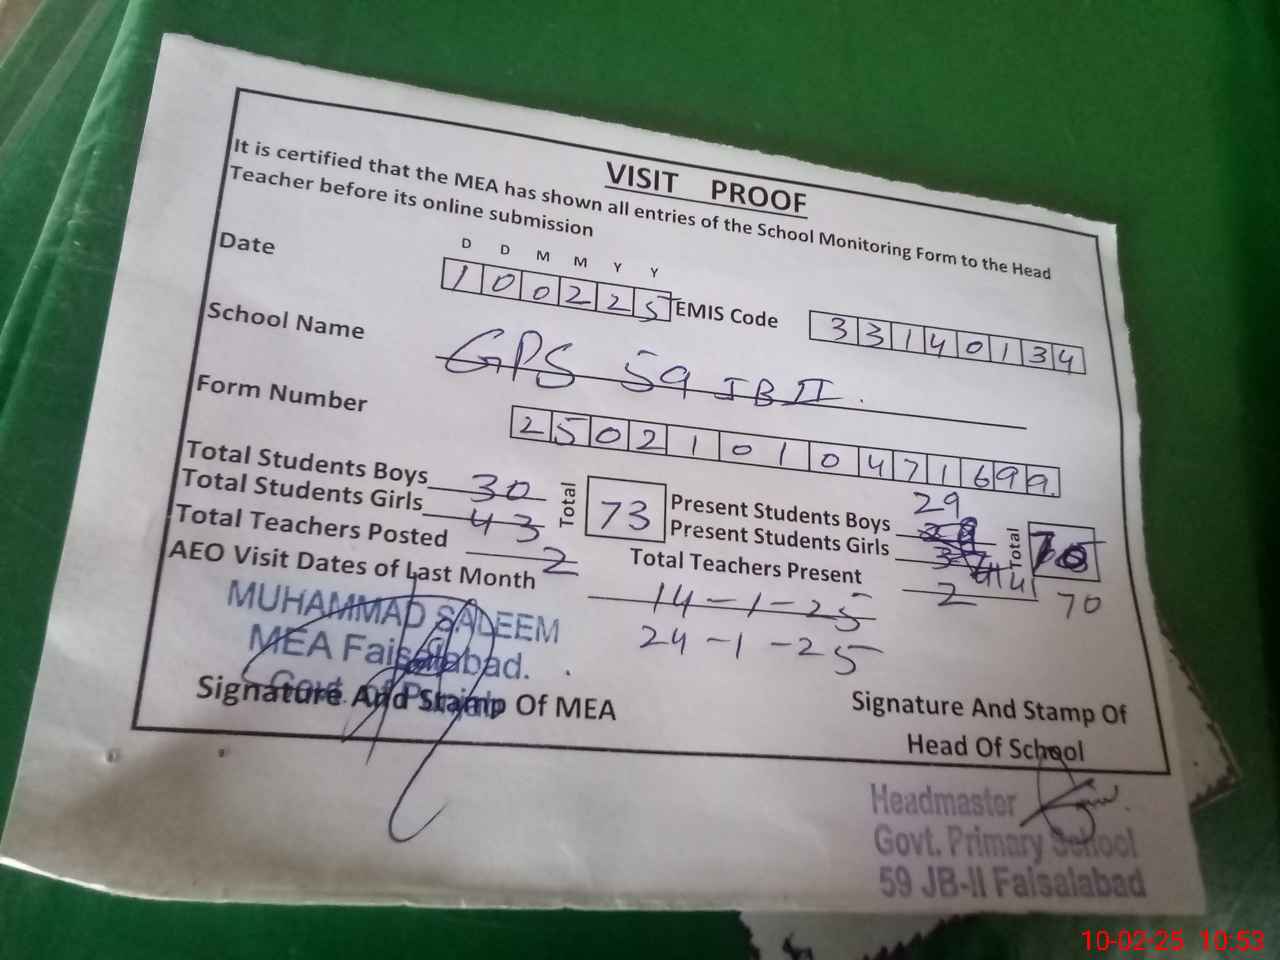 VISIT PROOF
It is certified that the MEA has shown all entries of the School Monitoring Form to the Head
Teacher before its online submission
D D M M Y Y
Date 1 0 0 2 2 5 EMIS Code 3 3 1 4 0 1 3 4
School Name GPS 59 JB II.
Form Number 2 5 0 2 1 0 1 0 4 7 1 6 9 9.
Total Students Boys 30 Total 73 Present Students Boys 29 Total
Total Students Girls 43 Present Students Girls 41 70
Total Teachers Posted 2 Total Teachers Present 2
AEO Visit Dates of Last Month 14-1-25
24-1-25
MUHAMMAD SALEEM
MEA Faisalabad.
Govt. of Punjab
Signature And Stamp Of MEA
Signature And Stamp Of
Head Of School
Headmaster
Govt. Primary School
59 JB-II Faisalabad
10-02-25 10:53